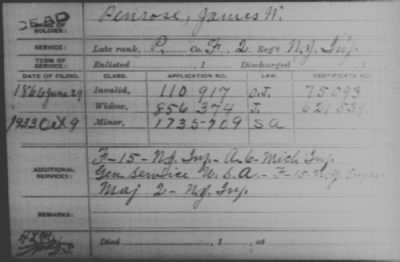 DEAD
NAME OF SOLDIER: Penrose, James W.
SERVICE: Late rank, P. Co. F, 2 Reg't N.J. Inf.
TERM OF SERVICE: Enlisted , 1 Discharged , 1
DATE OF FILING. CLASS. APPLICATION NO. LAW. CERTIFICATE NO.
1866 June 29 Invalid, 110 917 O.J. 75093
Widow, 856 374 J.
1933 Oct 9 Minor, 1735-709 S A
ADDITIONAL SERVICES: F-15-N.J. Inf.- A. 6-Mich Inf.
Gen Service U.S.A.- F-15-N.J.
Maj 2-N.J. Inf.
REMARKS:
Died , 1 , at